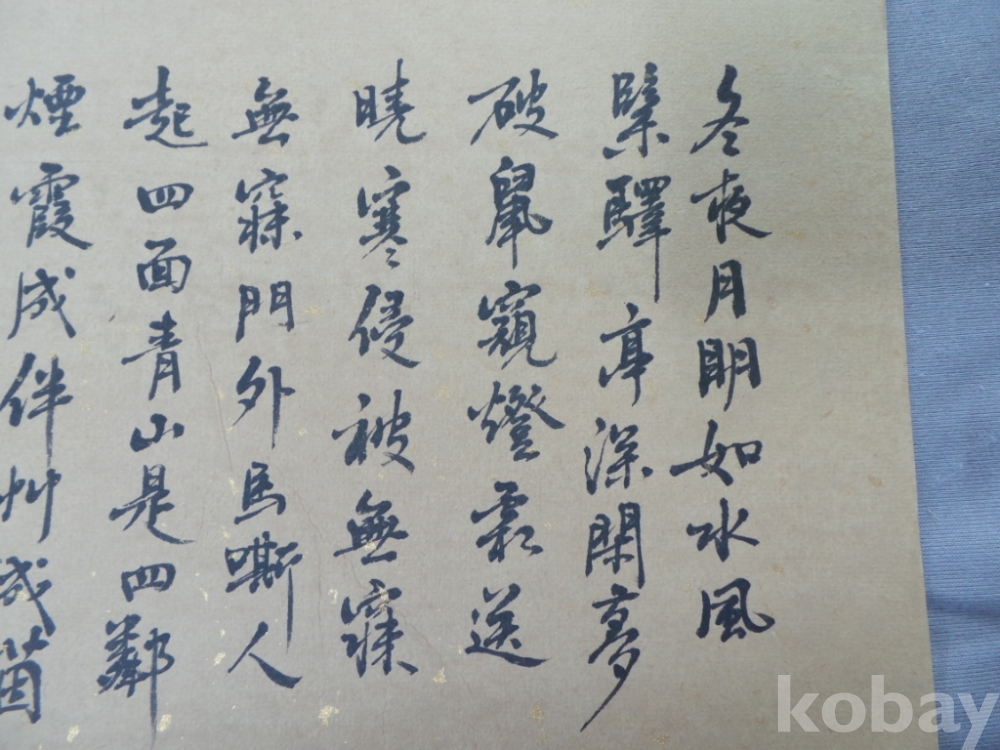 冬夜月明如水風
緊驛亭深閉夢
破鼠窺燈霜送
曉寒侵被無寐
無寐門外馬嘶人
起四面青山是四鄰
煙霞成伴艸成茵
kobay